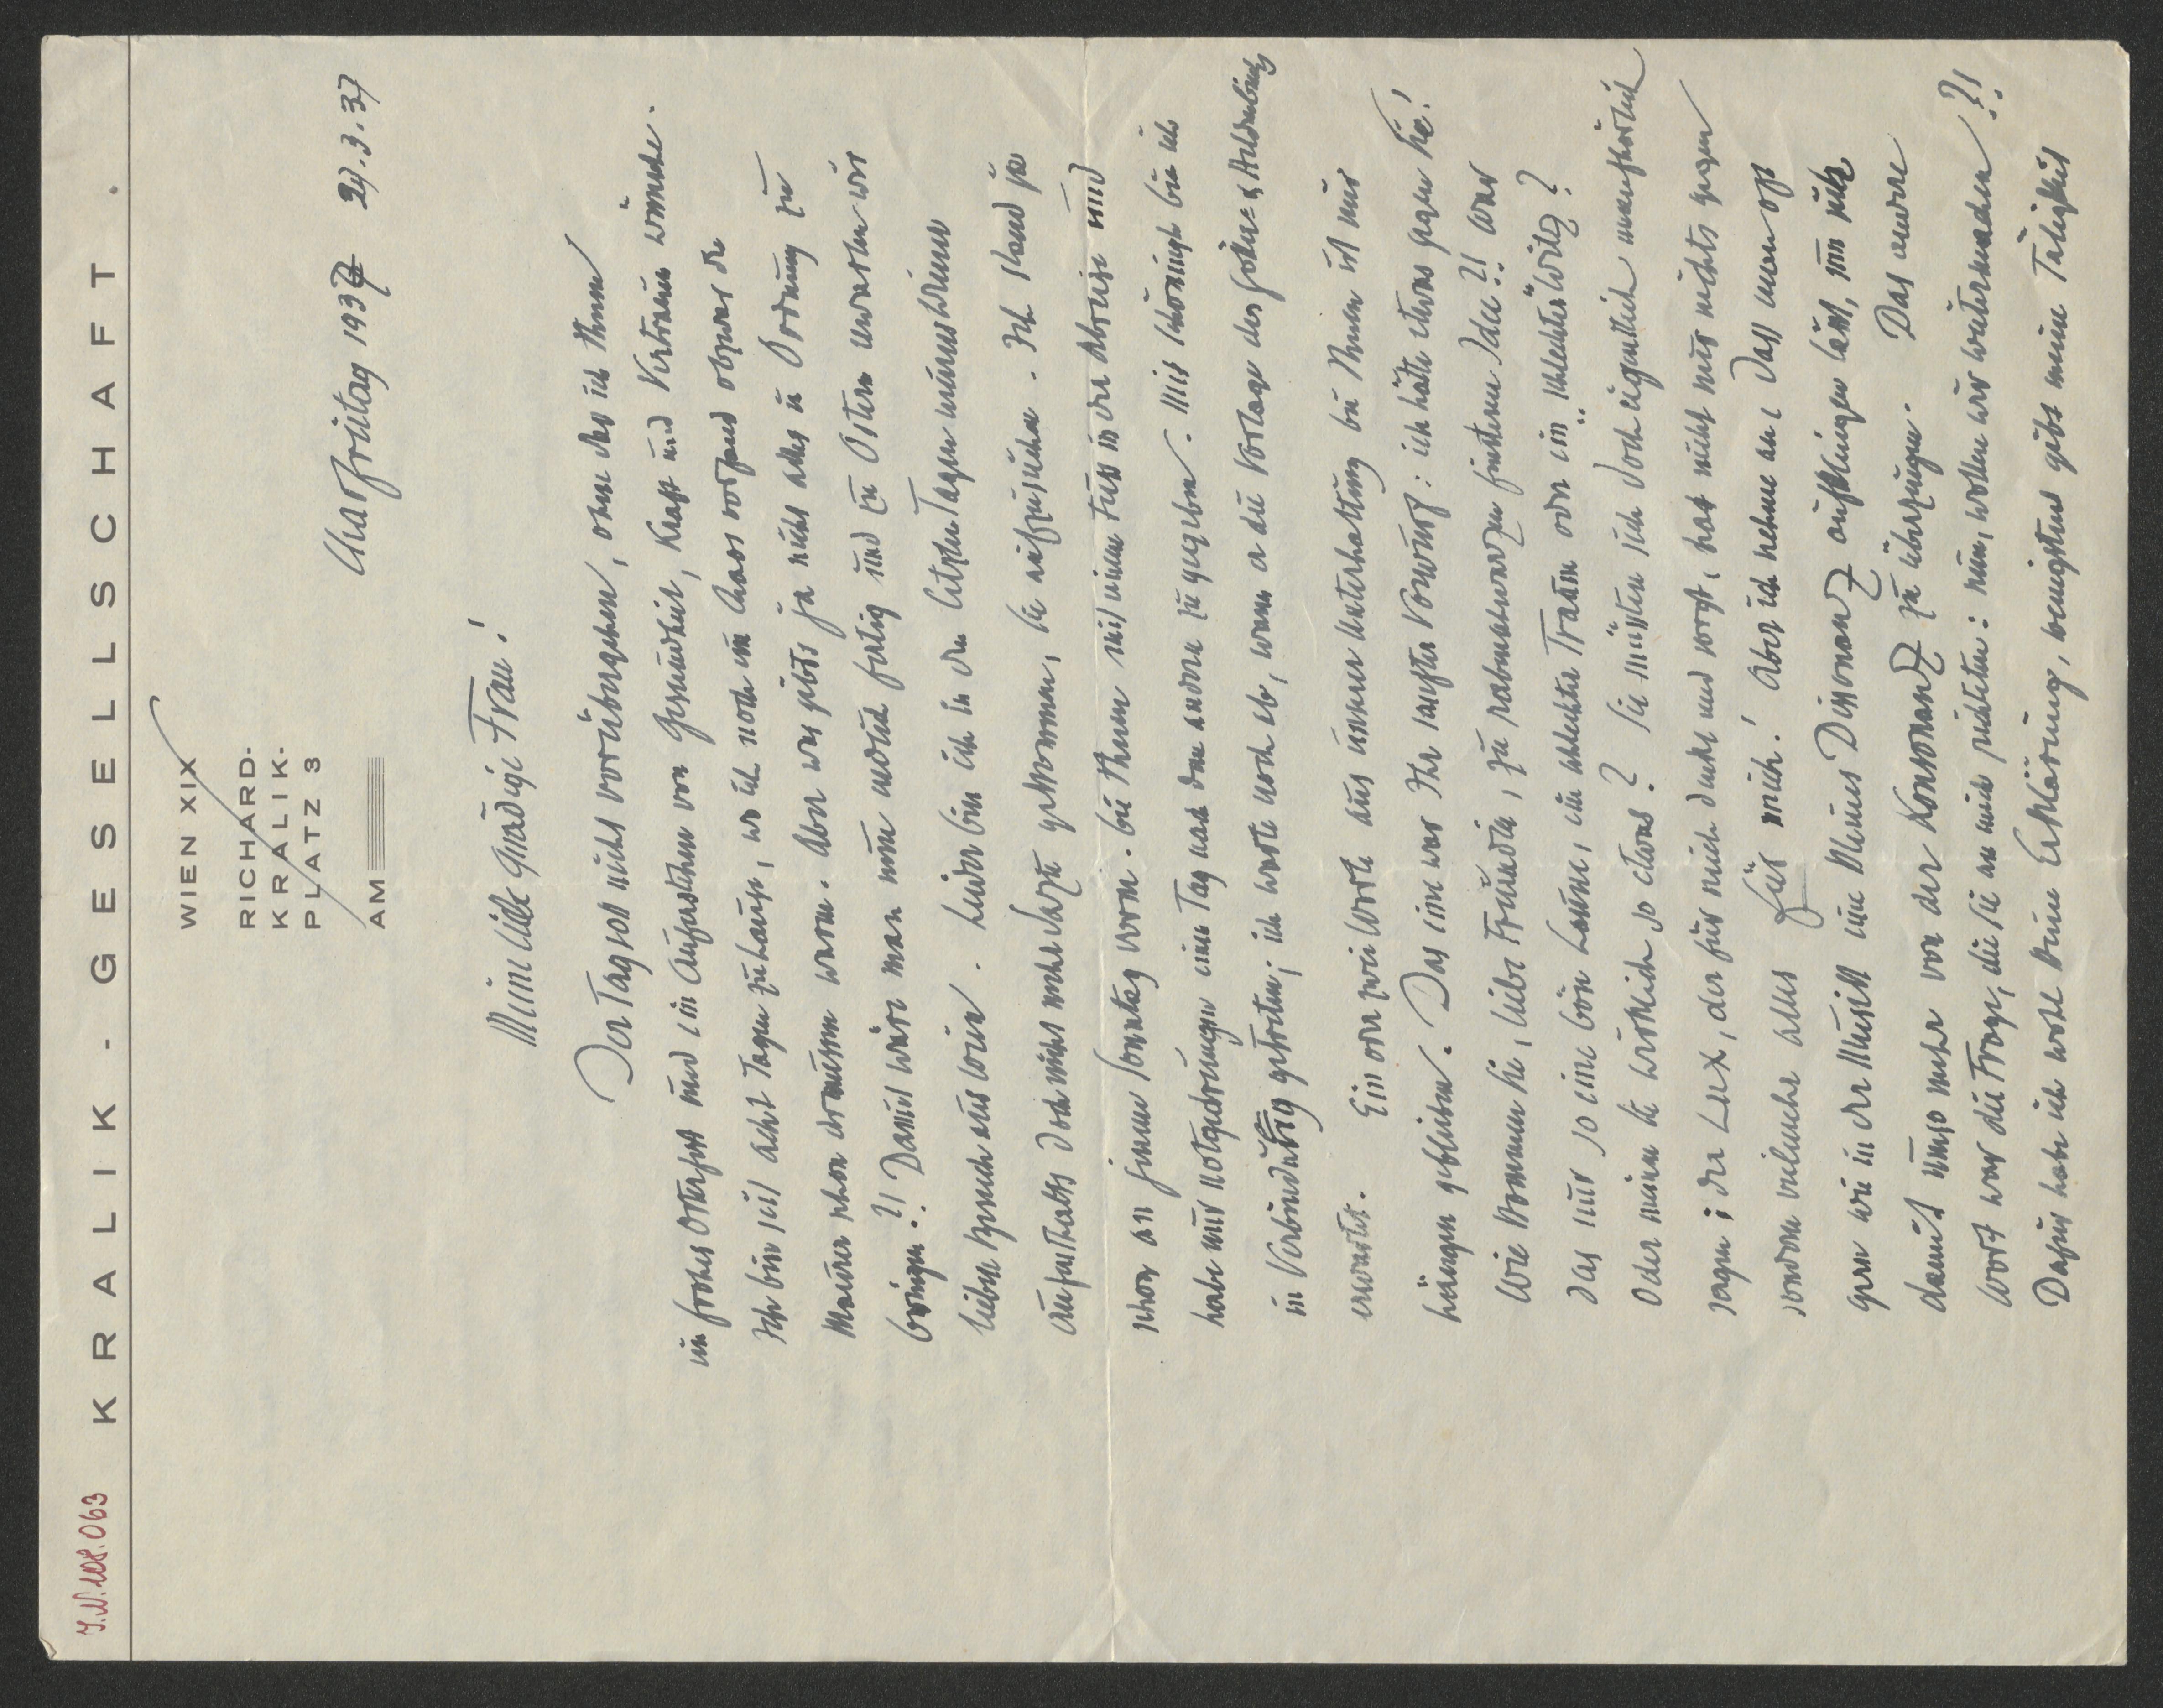 I.N. 108.063
KRALIK-GESELLSCHAFT.
WIEN XIX
RICHARD-
KRALIK-
PLATZ 3
AM
Charfreitag 1937 27.3.37
Meine liebe gnädige Frau!
Der Tag soll nicht vorübergehen, ohne das ich Ihnen
ein frohes Osterfest und ein Auferstehen von Gesundheit, Kraft und Vertrauen wünsche.
Ich bin seit acht Tagen zuhause, wo ich noch ein Chaos vorfand obzwar die
Maurer schon draussen waren. Aber was gibts ja nicht alles in Ordnung zu
bringen?! Damit wäre man nun endlich fertig und zu Ostern erwarten wir
lieben Besuch aus Wien. Leider bin ich in den letzten Tagen meines Wiener
Aufenthalts doch nicht mehr dazu gekommen, Sie aufzusuchen. Ich stand ja
schon an jenem Sonntag vorm. bei Ihnen mit einem Fuss in der Abreise und
habe nur notgedrungen einen Tag nach dem andern zugegeben. Mit Schöningh bin ich
in Verbindung getreten; ich warte noch ab, wann er die Vorlage des
erwartet. Ein oder zwei Worte aus unserer Unterhaltung bei Ihnen ist mir
hängen geblieben. Das eine war Ihr sanfter Vorwurf: ich hätte etwas gegen Sie!
Wie kommen Sie, liebe Freundin, zu rabenschwarzen finsteren Idee?! War
das nur so eine böse Laune, ein schlechter Traum oder ein "schlechter Witz"?
Oder meinen Sie wirklich so etwas? Sie müssten sich doch eigentlich unaufhörlich
sagen: der Lux, der für mich denkt und sorgt, hat nicht nur nichts gegen
sondern vielmehr alles für mich! Aber ich nehme an, dass man oft
gern wie in der Musik eine kleine Dissonanz aufklingen lässt, um sich
damit umso mehr von der Konsonanz zu überzeugen. Das andere
Wort war die Frage, die Sie an mich richteten: nun, wollen wir weitermachen?!
Dafür habe ich wohl keine Erklärung, wenigstens gibt meine Tätigkeit